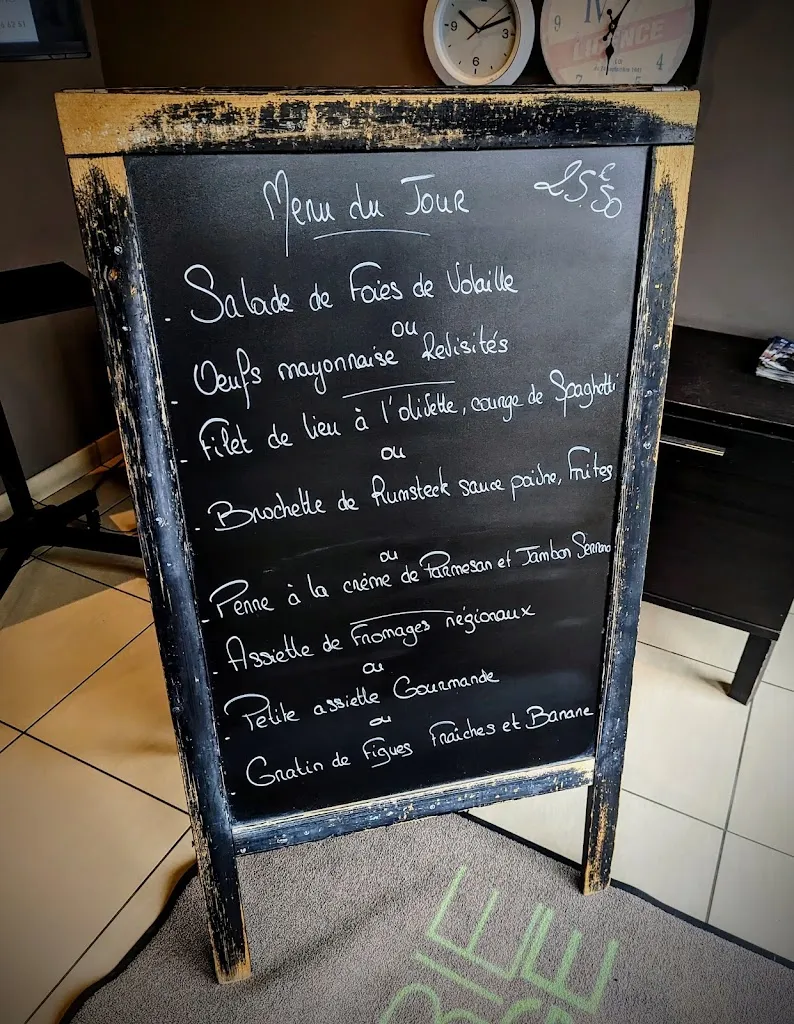 9
10
12
2
3
4
IV
LICENCE
7
4
Menu du Jour
25.€50
- Salade de Foies de Volaille
ou
- Oeufs mayonnaise Revisités
- Filet de lieu à l'olivette, courge de Spaghetti
ou
- Brochette de Rumsteck sauce poivre, Frites
ou
- Penne à la crème de Parmesan et Jambon Serrano
- Assiette de Fromages régionaux
ou
- Petite assiette Gourmande
ou
- Gratin de Figues Fraîches et Banane